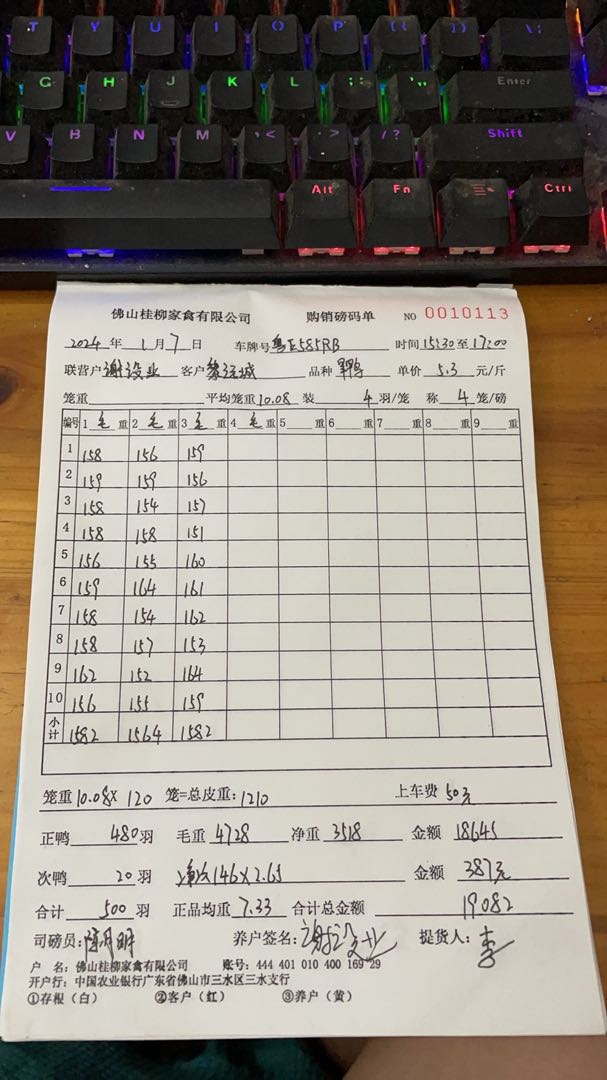 T Y U I O P {[ }] \;
G H J K L :; "' Enter
V B N M ,< .> /? Shift
Alt Fn Ctrl
佛山桂柳家禽有限公司 购销磅码单 NO 0010113
2024年1月7日 车牌号粤E585RB 时间15:30至17:00
联营户 客户 品种 单价5.3元/斤
笼重 平均笼重10.08 装4羽/笼 称4笼/磅
编号 1毛重 2毛重 3毛重 4毛重 5 重 6 重 7 重 8 重 9 重
1 158 156 159
2 159 159 156
3 158 154 157
4 158 158 151
5 156 155 160
6 159 164 161
7 158 154 162
8 158 157 153
9 162 152 164
10 156 155 159
小计 1582 1564 1582
笼重10.08×120笼=总皮重:1210 上车费50元
正鸭480羽 毛重4728 净重3518 金额18645
次鸭20羽 146×2.65 金额387元
合计500羽 正品均重7.33 合计总金额19082
司磅员: 养户签名: 提货人:李
户 名:佛山桂柳家禽有限公司 账号:444 401 010 400 169 29
开户行:中国农业银行广东省佛山市三水区三水支行
①存根(白) ②客户(红) ③养户(黄)